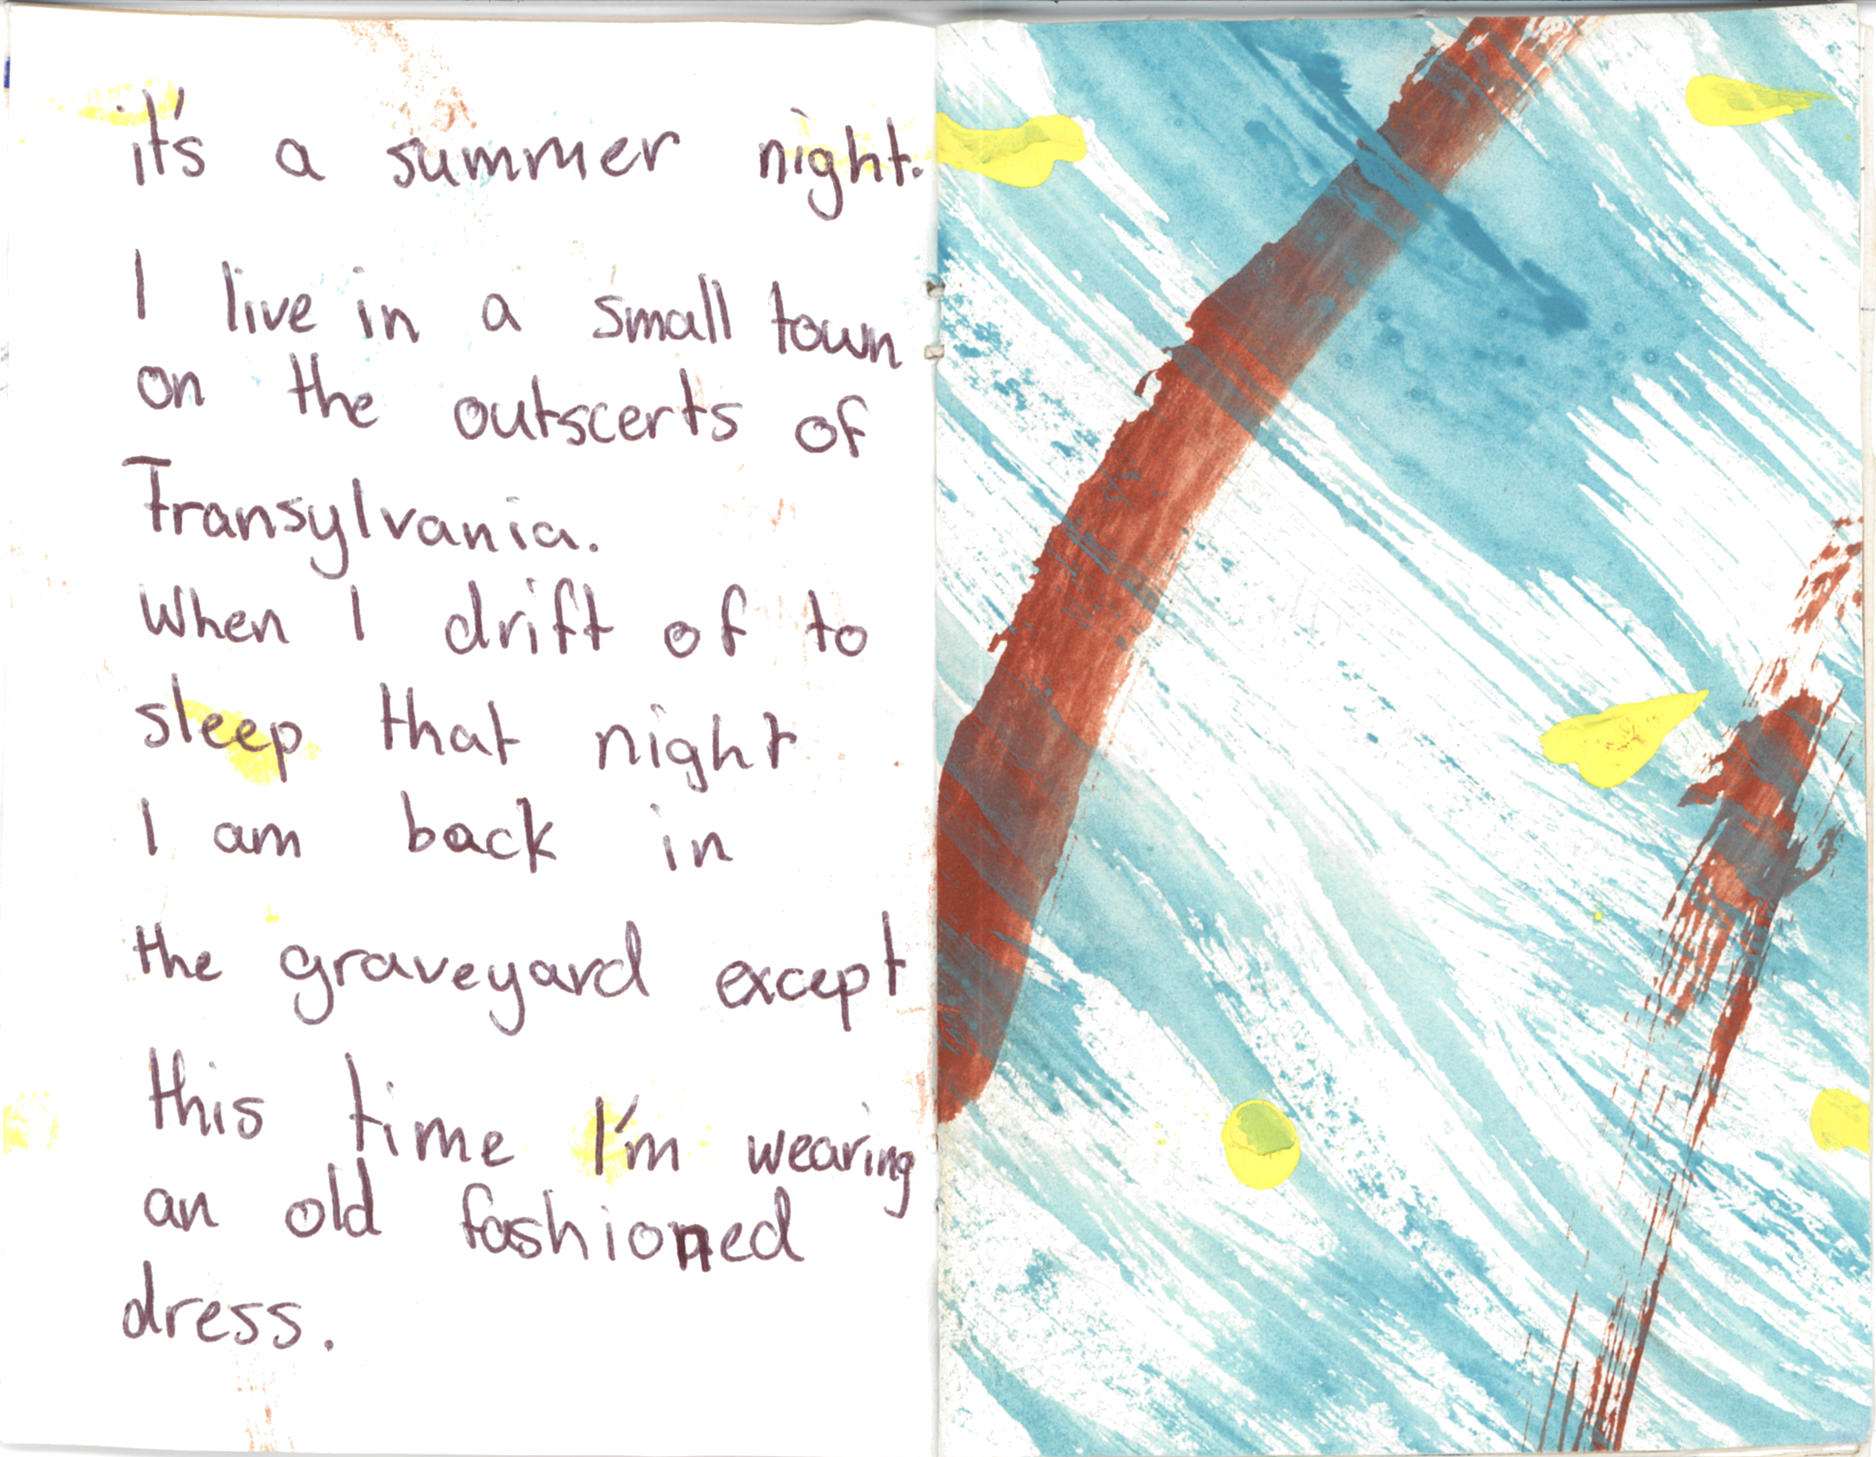 it's a summer night.
I live in a small town
on the outscerts of
Transylvania.
When I drift of to
sleep that night
I am back in
the graveyard except
this time I'm wearing
an old fashioned
dress.